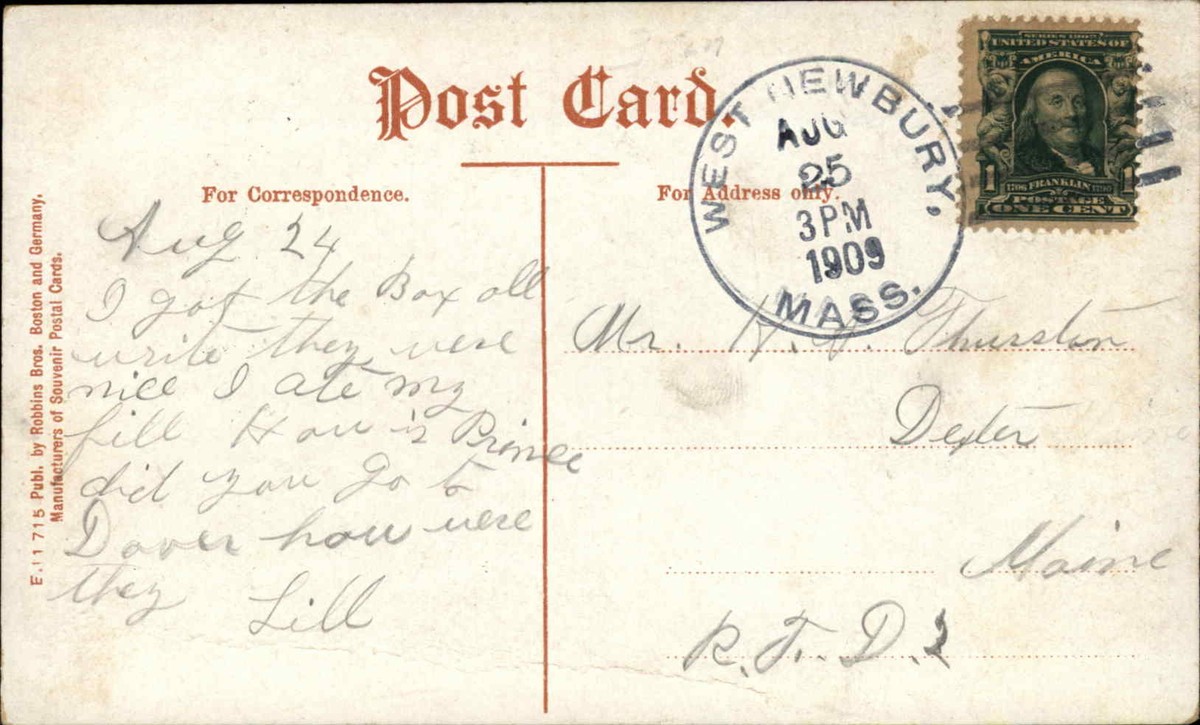 Post Card.
For Correspondence.
For Address only.
WEST NEWBURY,
AUG
25
3 PM
1909
MASS.
SERIES 1902
UNITED STATES OF
AMERICA
1 1706 FRANKLIN 1790 1
POSTAGE
ONE CENT
E. 11 715 Publ. by Robbins Bros. Boston and Germany.
Manufacturers of Souvenir Postal Cards.
Aug 24
I got the Box all
write they were
nice I ate my
fill How is Prince
did you go to
Dover how were
they Lill
Mr. H. J. Thurston
Dexter
Maine
R. F. D. 2